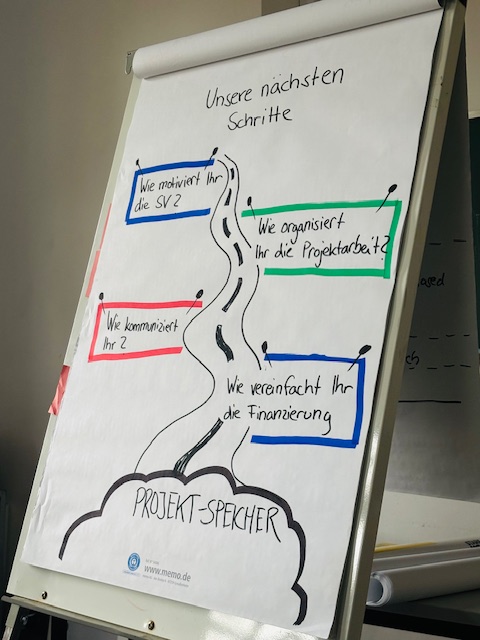 Unsere nächsten
Schritte
Wie motiviert Ihr
die SV?
Wie organisiert
Ihr die Projektarbeit?
Wie kommuniziert
Ihr?
Wie vereinfacht Ihr
die Finanzierung
PROJEKT-SPEICHER
www.memo.de